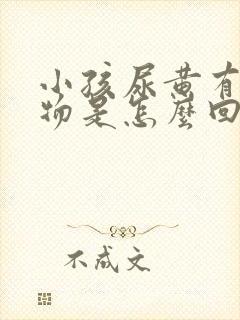 小孩尿黄有
物是怎麼回
不成文